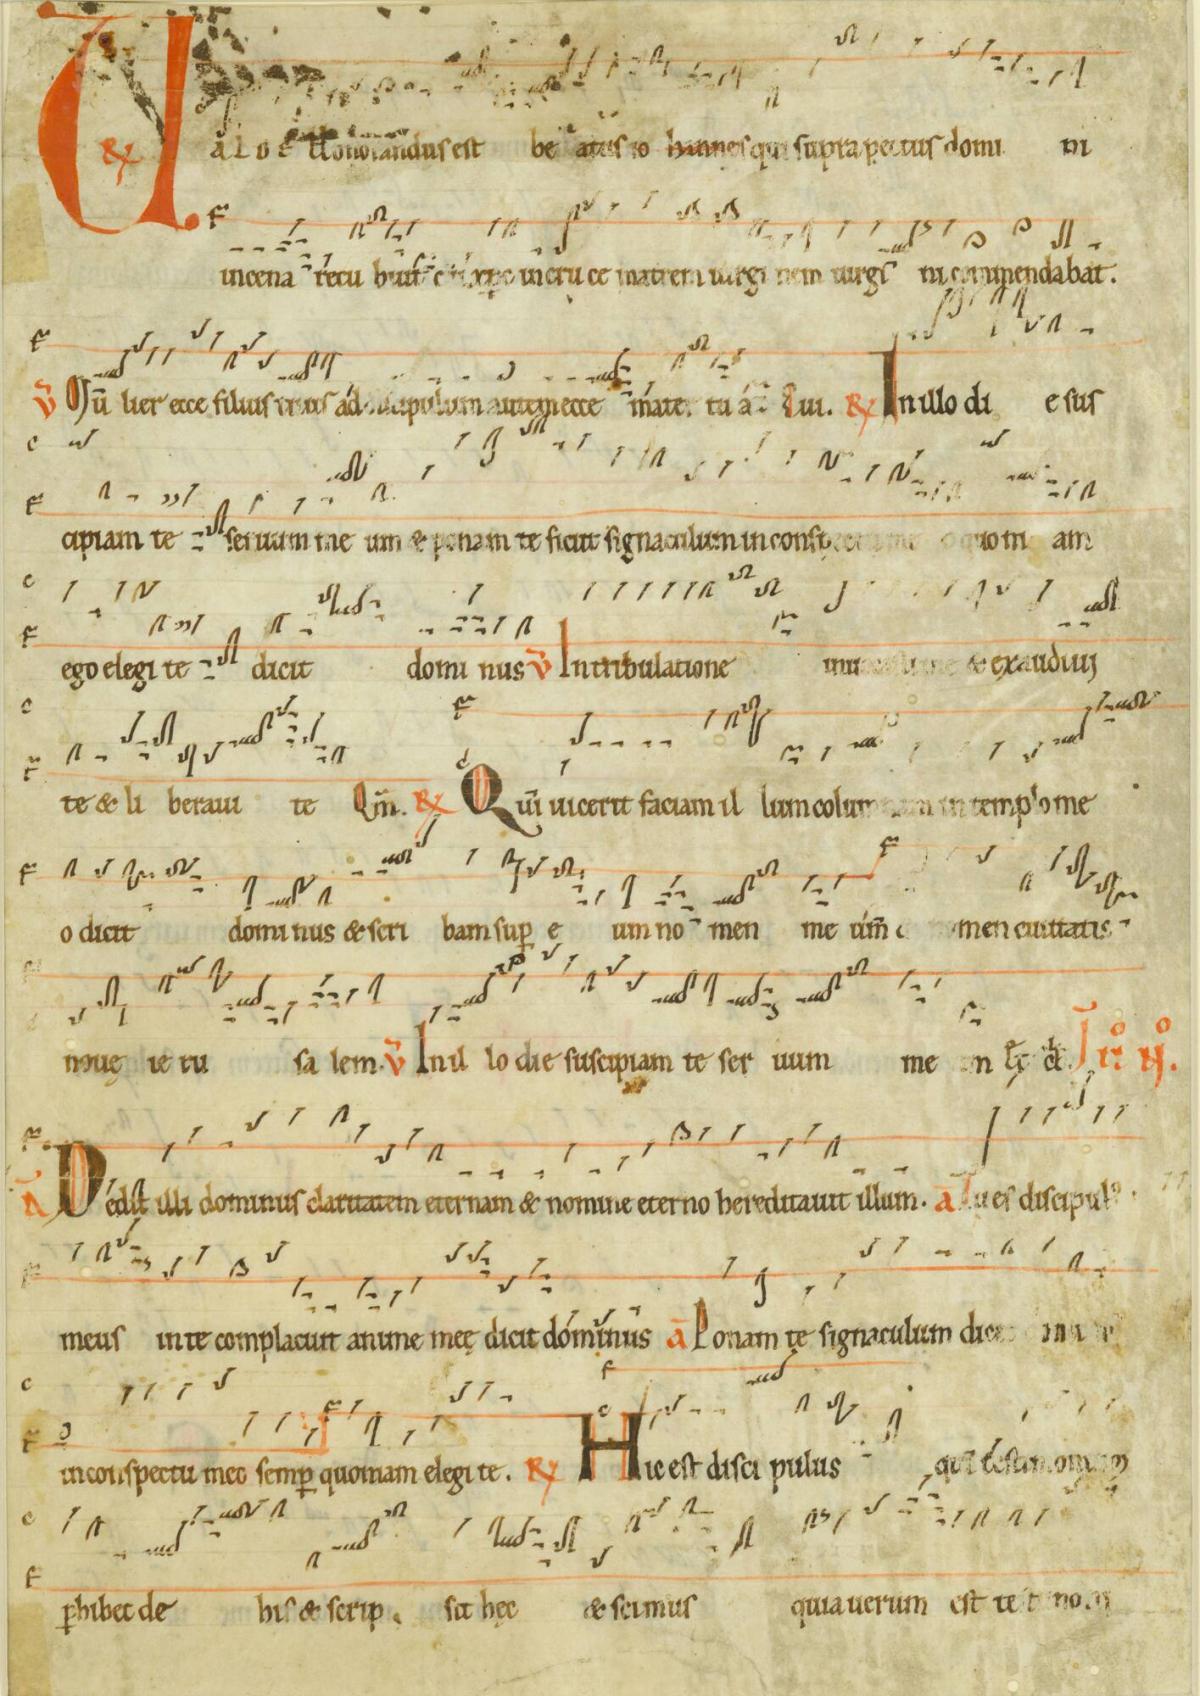 R' Ualde honorandus est beatus iohannes qui supra pectus domini
in cena recubuit cui xpc in cruce matrem uirginem uirgini commendabat.
V Mulier ecce filius tuus ad discipulum autem ecce mater tua Cui. R' In illo die sus
cipiam te seruum meum & ponam te sicut signaculum in conspectu quoniam
ego elegi te dicit dominus V In tribulatione & exaudiui
te & liberaui te Qm̄. R' Qui uicerit faciam illum columnam in templo me
o dicit dominus & scribam sup eum nomen meum nomen ciuitatis
nouę ierusalem. V In illo die suscipiam te seruum me
A Dedit illi dominus claritatem eternam & nomine eterno hereditauit illum. A Tu es discipul'
meus in te complacuit anime meę dicit dominus A Ponam te signaculum
in conspectu meo semp quoniam elegi te. R' Hic est discipulus qui testimonium
phibet de his & scripsit hęc & scimus quia uerum est